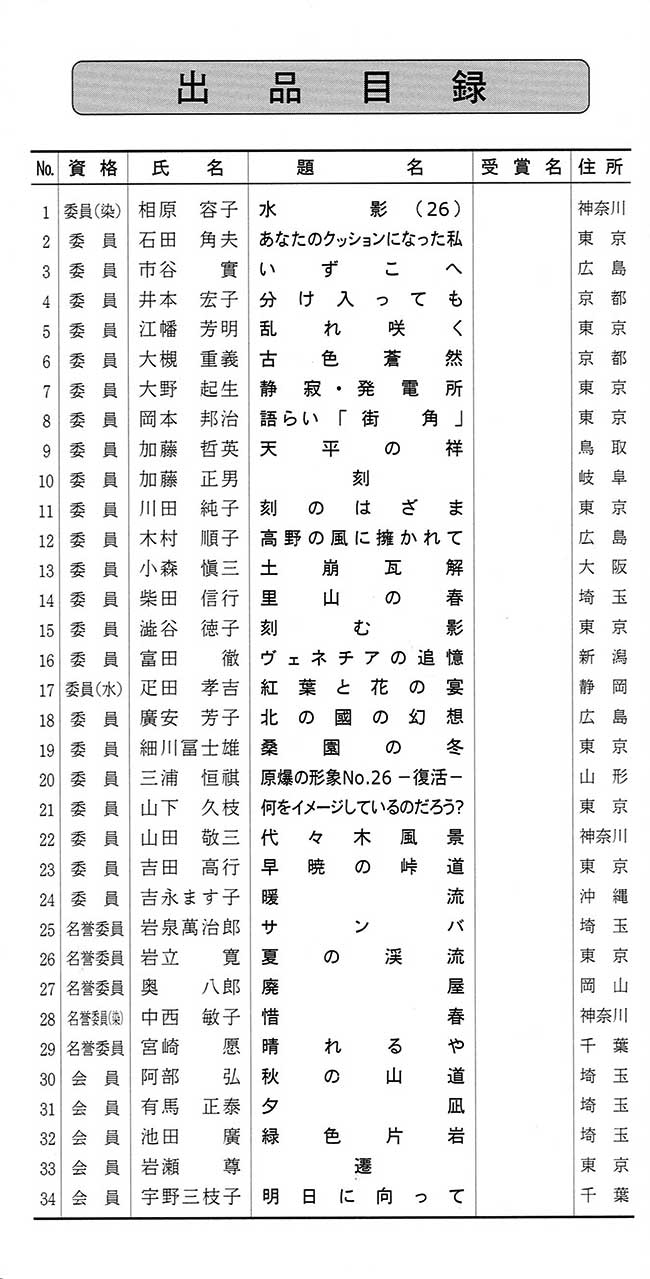 出品目録
No. 資格 氏名 題名 受賞名 住所
1 委員(染) 相原 容子 水影(26) 神奈川
2 委員 石田 角夫 あなたのクッションになった私 東京
3 委員 市谷 實 いずこへ 広島
4 委員 井本 宏子 分け入っても 京都
5 委員 江幡 芳明 乱れ咲く 東京
6 委員 大槻 重義 古色蒼然 京都
7 委員 大野 起生 静寂・発電所 東京
8 委員 岡本 邦治 語らい「街角」 東京
9 委員 加藤 哲英 天平の祥 鳥取
10 委員 加藤 正男 刻 岐阜
11 委員 川田 純子 刻のはざま 東京
12 委員 木村 順子 高野の風に擁かれて 広島
13 委員 小森 愼三 土崩瓦解 大阪
14 委員 柴田 信行 里山の春 埼玉
15 委員 澁谷 徳子 刻む影 東京
16 委員 富田 徹 ヴェネチアの追憶 新潟
17 委員(水) 疋田 孝吉 紅葉と花の宴 静岡
18 委員 廣安 芳子 北の國の幻想 広島
19 委員 細川冨士雄 桑園の冬 東京
20 委員 三浦 恒祺 原爆の形象No.26－復活－ 山形
21 委員 山下 久枝 何をイメージしているのだろう? 東京
22 委員 山田 敬三 代々木風景 神奈川
23 委員 吉田 高行 早暁の峠道 東京
24 委員 吉永ます子 暖流 沖縄
25 名誉委員 岩泉萬治郎 サンバ 埼玉
26 名誉委員 岩立 寛 夏の渓流 東京
27 名誉委員 奥 八郎 廃屋 岡山
28 名誉委員(染) 中西 敏子 惜春 神奈川
29 名誉委員 宮崎 愿 晴れるや 千葉
30 会員 阿部 弘 秋の山道 埼玉
31 会員 有馬 正泰 夕凪 埼玉
32 会員 池田 廣 緑色片岩 埼玉
33 会員 岩瀬 尊 遷 東京
34 会員 宇野三枝子 明日に向って 千葉